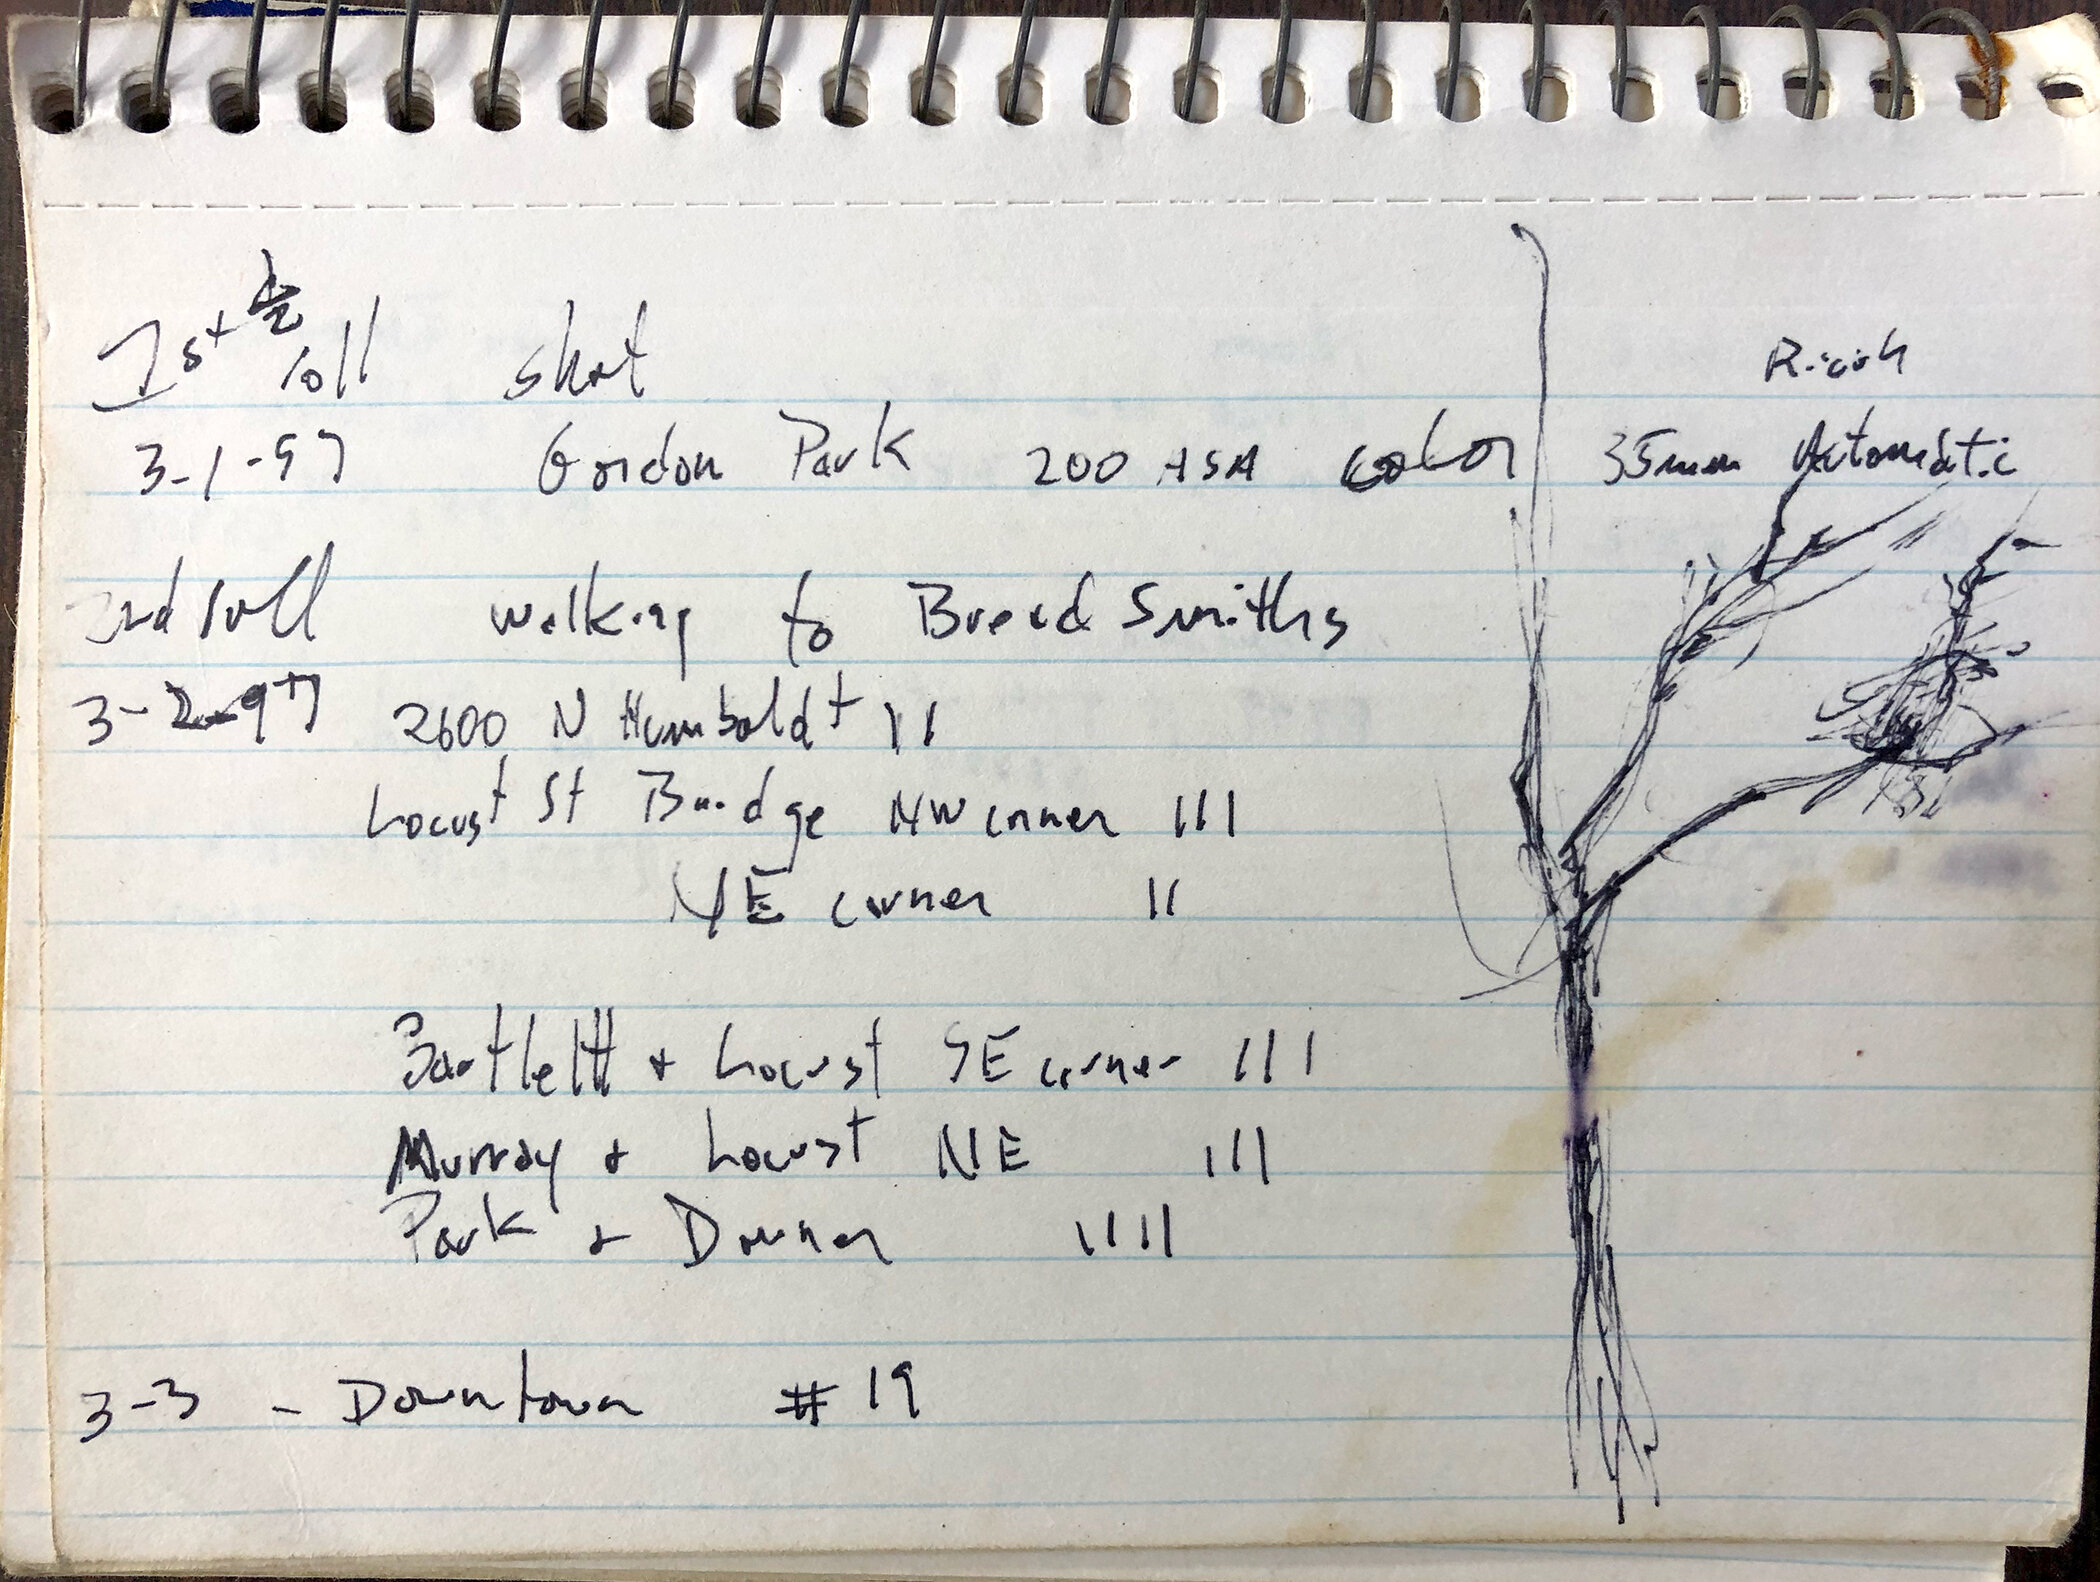 1st 1/2 roll shot
Ricoh
3-1-97 Gordon Park 200 ASA color 35mm Automatic
2nd roll Walking to Bread Smiths
3-2-97 2600 N Humboldt ||
Locust St Bridge NW corner |||
NE corner ||
Bartlett + Locust SE corner |||
Murray + Locust NE |||
Park + Downer ||||
3-3 - Downtown # 19